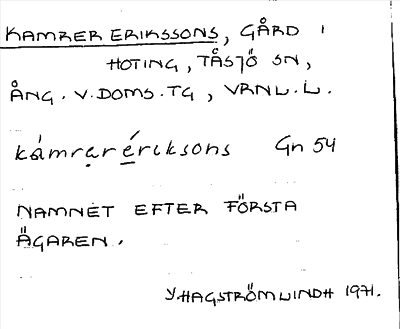 KAMRER ERIKSSONS, GÅRD I
HOTING, TÅSJÖ SN,
ÅNG. V. DOMS. TG, VRNL. L.
kámrạr ériksons Gn 54
NAMNET EFTER FÖRSTA
ÄGAREN.
Y HAGSTRÖM LINDH 1971.